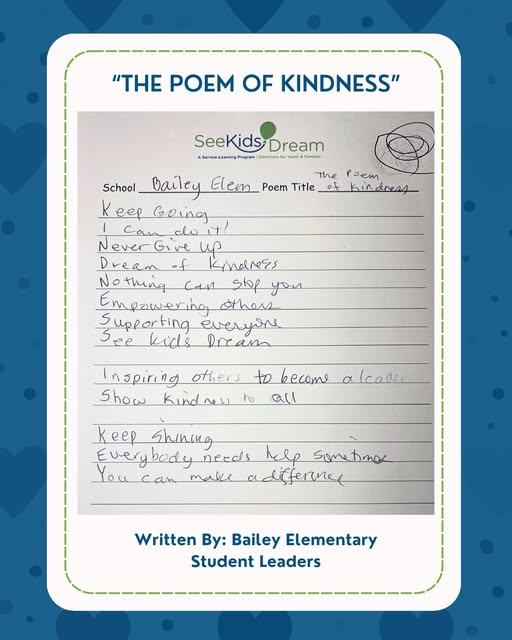 “THE POEM OF KINDNESS”
SeeKids Dream
A Service-Learning Program | Directions for Youth & Families
School Bailey Elem Poem Title the Poem of kindness
Keep Going
I can do it!
Never Give up
Dream of kindness
Nothing can stop you
Empowering others
Supporting everyone
See kids Dream
Inspiring others to become a leader
Show kindness to all
Keep Shining
Everybody needs help sometimes
You can make a difference
Written By: Bailey Elementary
Student Leaders